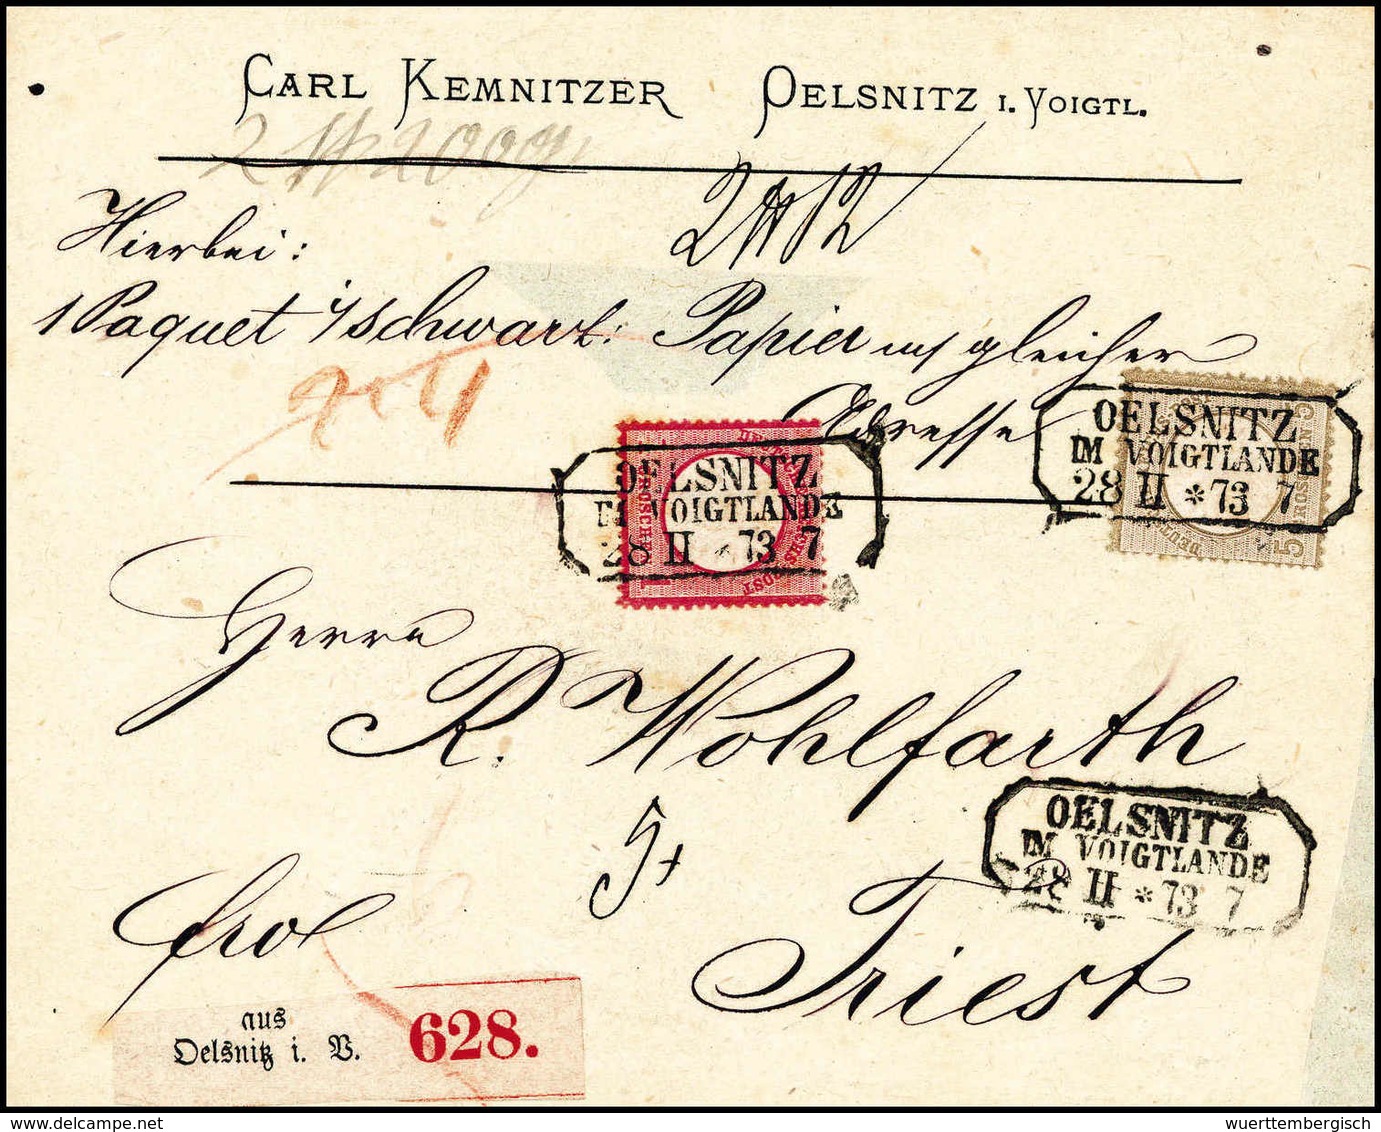 CARL KEMNITZER OELSNITZ I. VOIGTL.
2 ℔ 200 g
2 ℔ 12
Hierbei:
1 Paquet i/schwart: Papier m/ gleicher
Adresse
OELSNITZ
IM VOIGTLANDE
28 II * 73 7
OELSNITZ
IM VOIGTLANDE
28 II * 73 7
GROSCHEN
1
5
Herrn
R. Wohlfarth
OELSNITZ
IM VOIGTLANDE
28 II * 73 7
frco
Triest
aus
Oelsnitz i. V.
628.
wuerttembergisch